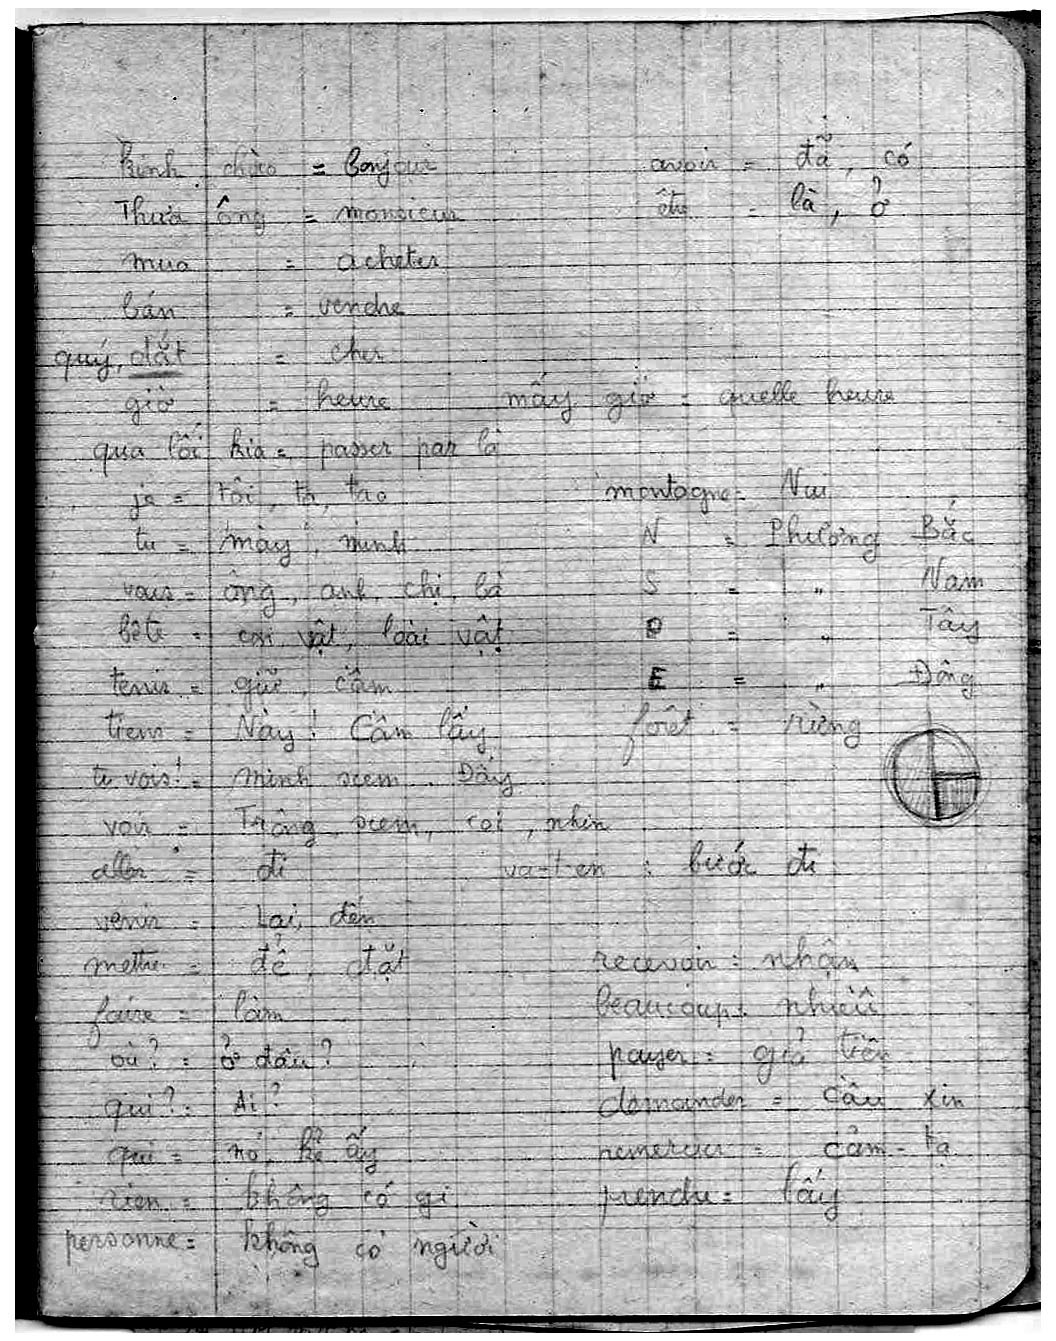 Kính chào = Bonjour avoir = đã, có
Thưa ông = monsieur être = là, ở
mua = acheter
bán = vendre
quý, đắt = cher
giờ = heure mấy giờ = quelle heure
qua lối kia = passer par là
je = tôi, ta, tao montagne = Nui
tu = mày, minh N = Phương Bắc
vous = ông, anh, chị, bà S = " Nam
bête = con vật, loài vật O = " Tây
tenir = giữ, cầm E = " Đông
tiens = Này! Cầm lấy forêt = rừng
tu vois! = minh xem. Đấy
voir = Trông, xem, coi, nhìn
aller = đi va-t-en : bước đi
venir = Lại, đến
mettre = để, đặt recevoir = nhận
faire = làm beaucoup = nhiều
où? = ở đâu? payer = giả tiền
qui? = Ai? demander = cầu xin
qui = nó, kẻ ấy remercier = cảm-tạ
rien = không có gi prendre = lấy
personne = không có người